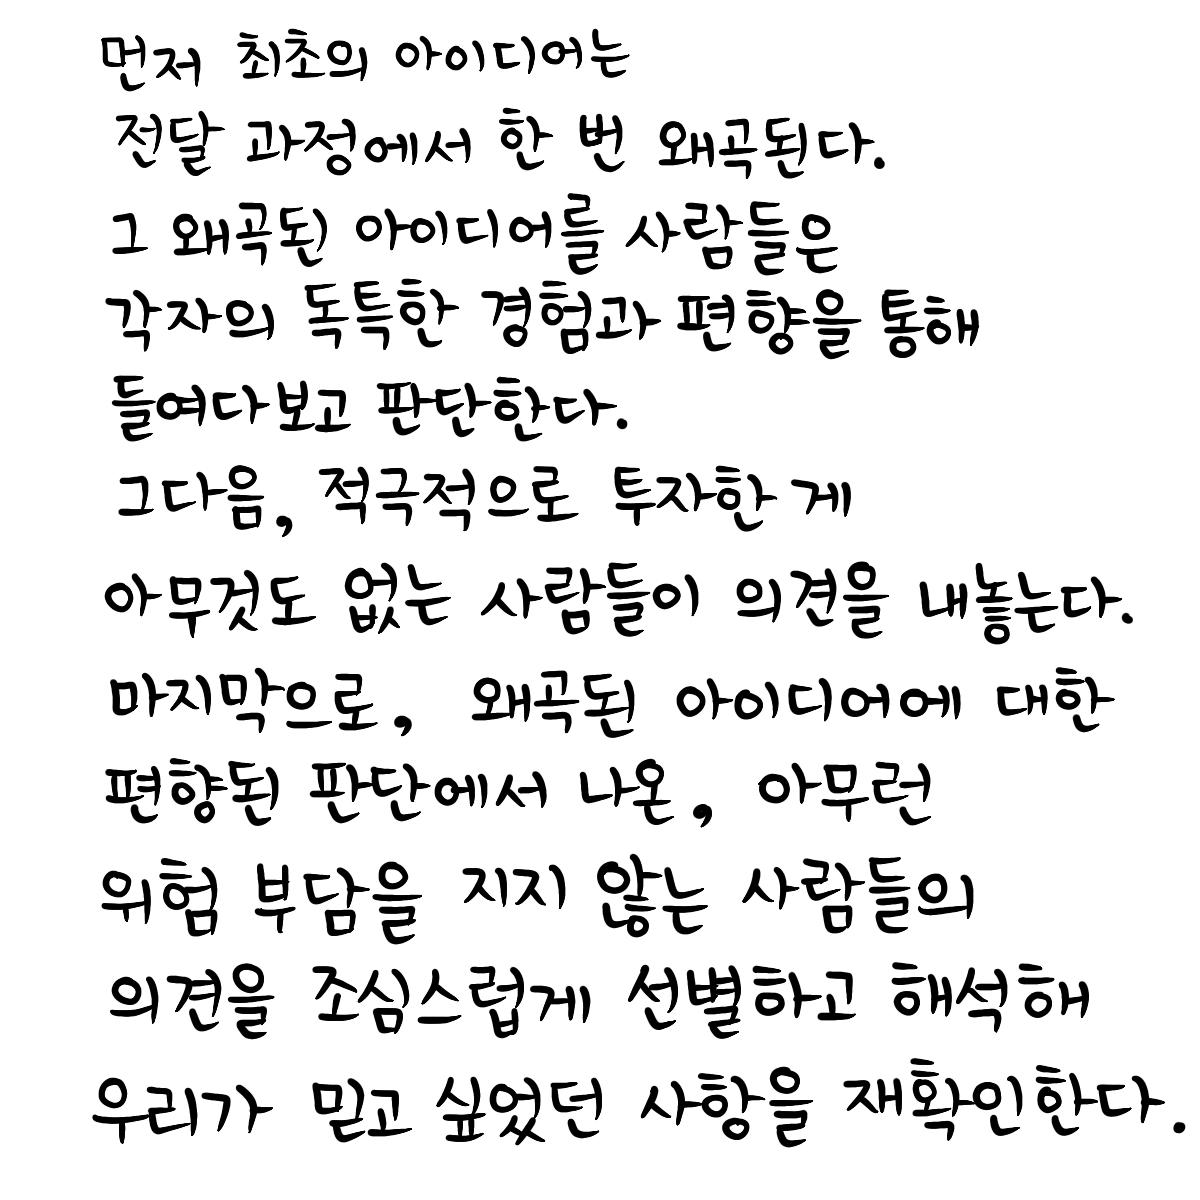 먼저 최초의 아이디어는
전달 과정에서 한 번 왜곡된다.
그 왜곡된 아이디어를 사람들은
각자의 독특한 경험과 편향을 통해
들여다보고 판단한다.
그다음, 적극적으로 투자한 게
아무것도 없는 사람들이 의견을 내놓는다.
마지막으로, 왜곡된 아이디어에 대한
편향된 판단에서 나온, 아무런
위험 부담을 지지 않는 사람들의
의견을 조심스럽게 선별하고 해석해
우리가 믿고 싶었던 사항을 재확인한다.